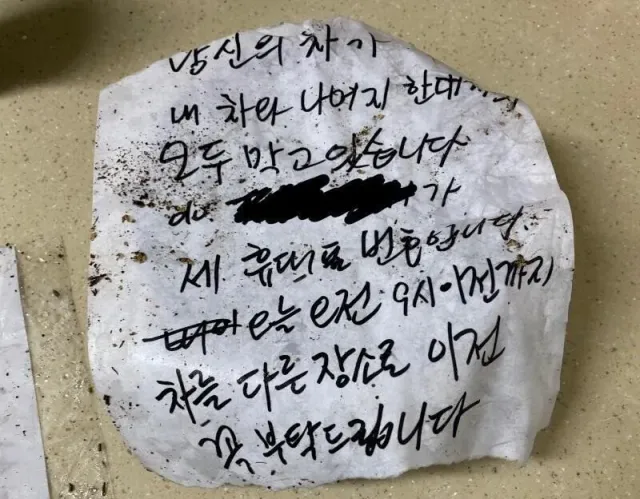 당신의 차가
내 차와 나머지 한대까지
모두 막고 있습니다
010 가
제 휴대폰 번호입니다
오늘 오전 9시이전까지
차를 다른장소로 이전
꼭 부탁드립니다